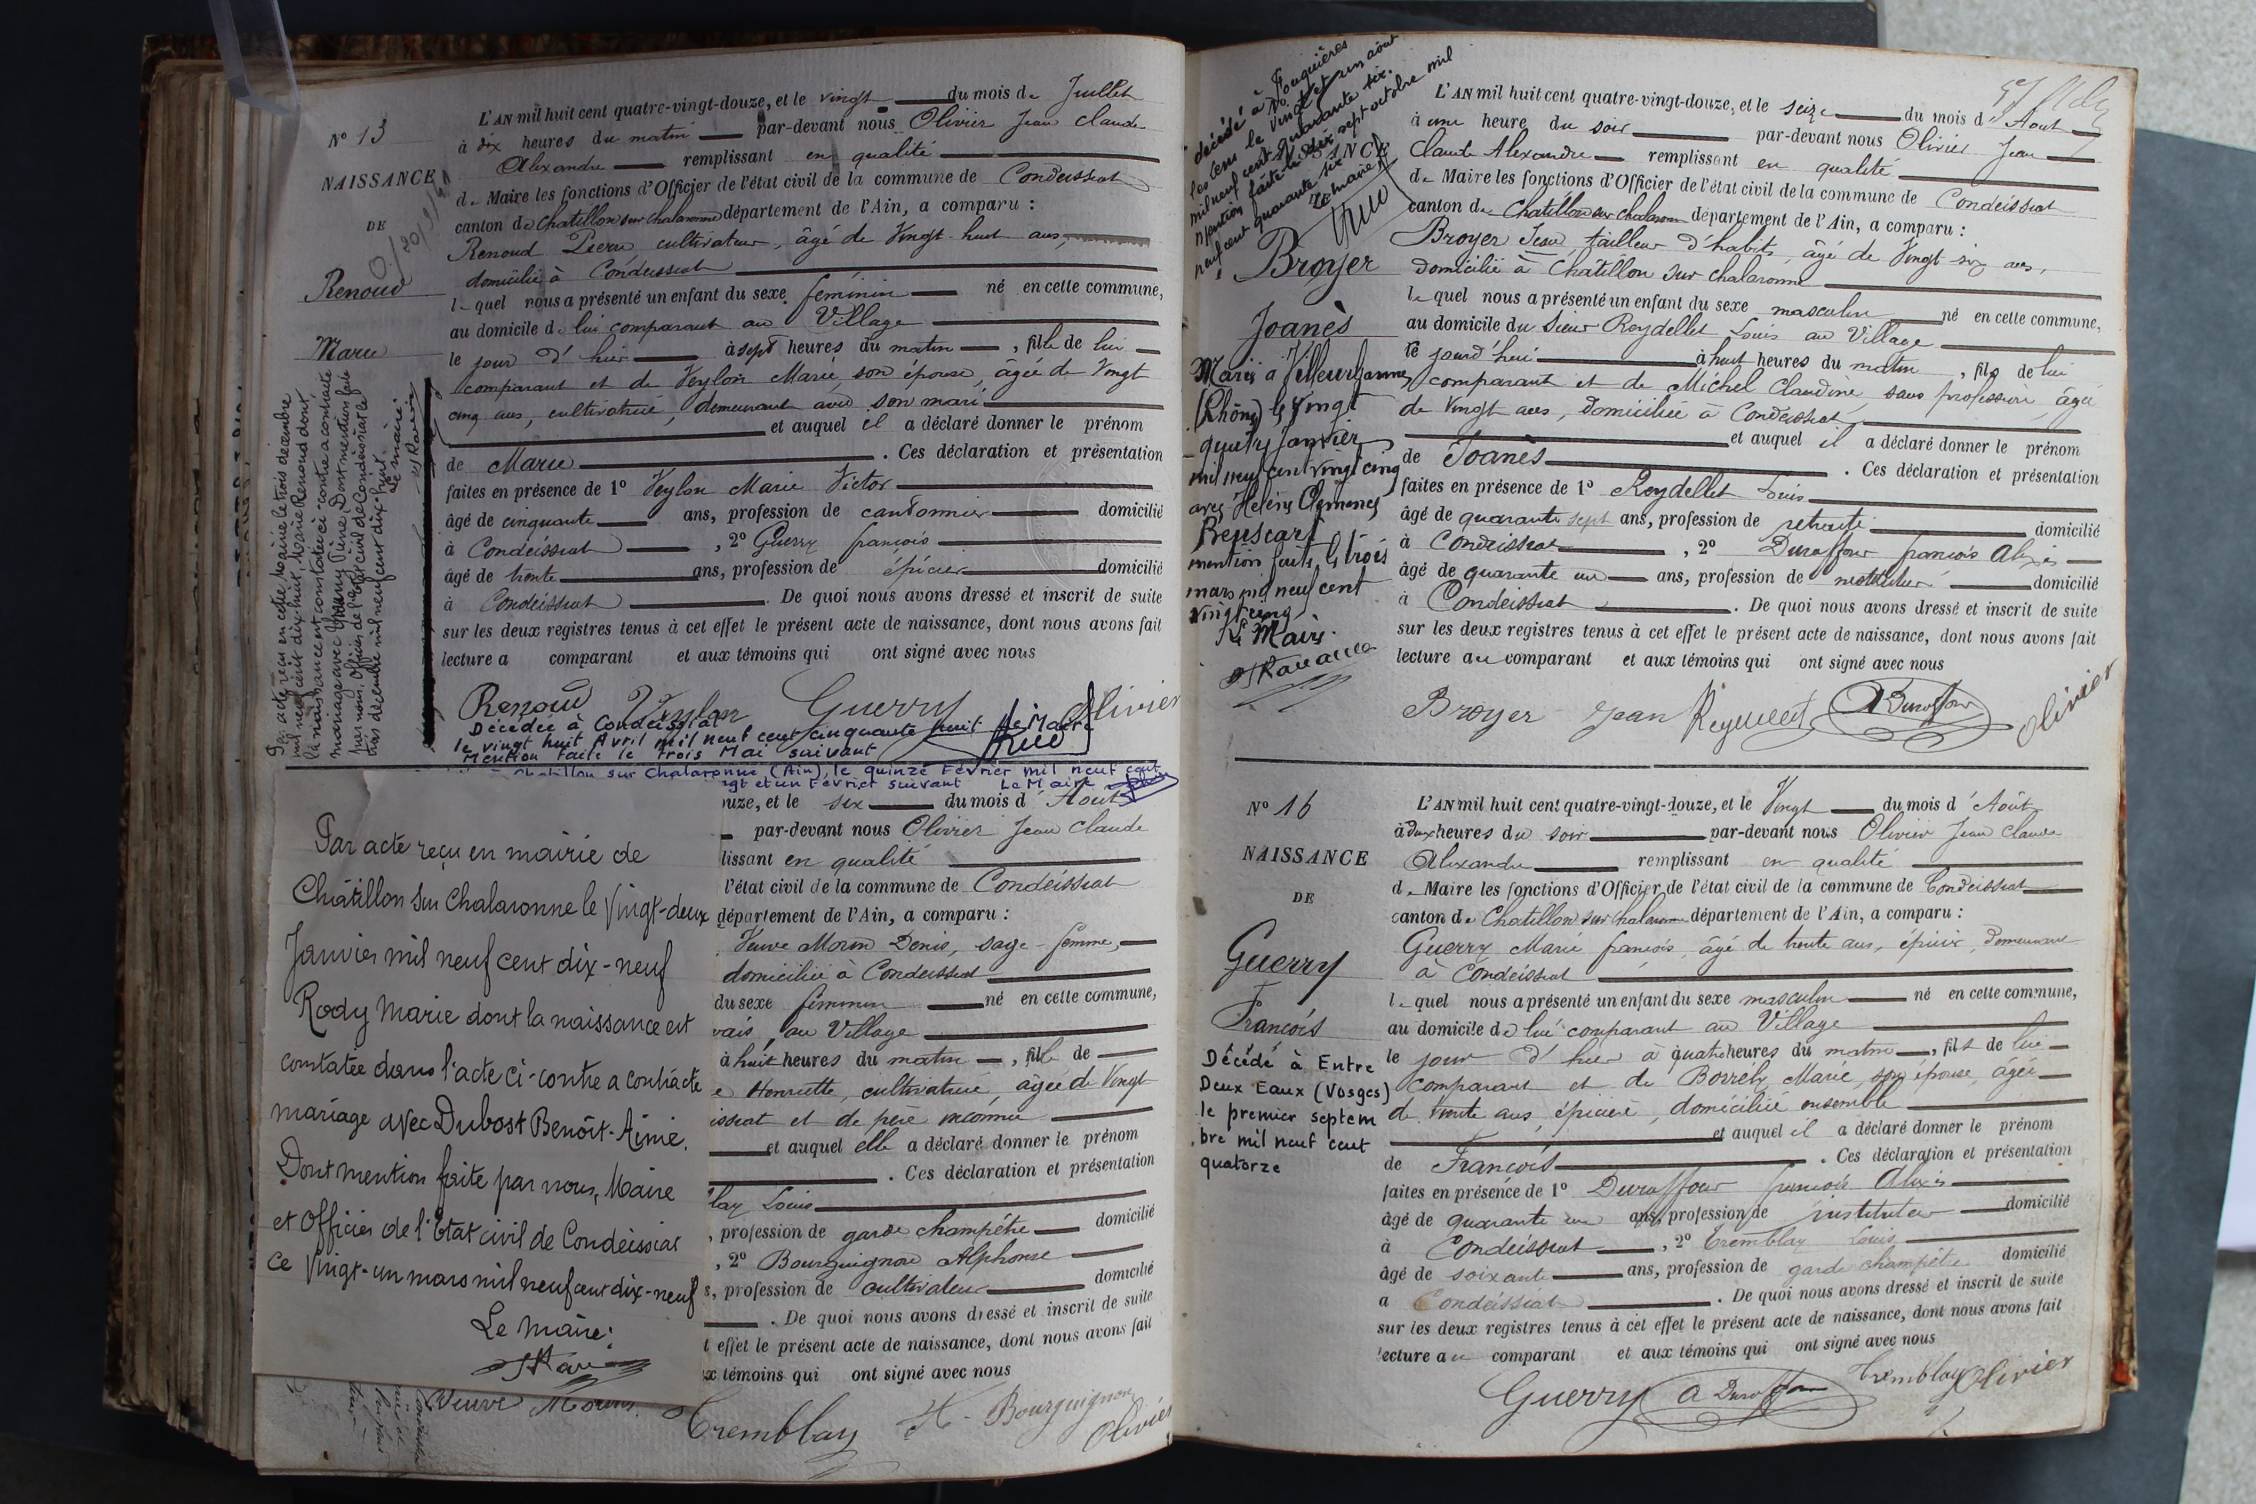 N° 13
NAISSANCE
DE
Renoud
Marie
L'AN mil huit cent quatre-vingt-douze, et le vingt du mois de Juillet
à dix heures du matin par-devant nous Olivier Jean Claude
Alexandre remplissant en qualité
de Maire les fonctions d'Officier de l'état civil de la commune de Condeissiat
canton de Chatillon sur Chalaronne département de l'Ain, a comparu :
Renoud Pierre cultivateur, âgé de Vingt huit ans,
domicilié à Condeissiat
lequel nous a présenté un enfant du sexe féminin né en cette commune,
au domicile de lui comparant au Village
le jour d'hier à sept heures du matin, fille de lui
comparant et de Veylon Marie, son épouse, âgée de Vingt
cinq ans, cultivatrice, demeurant avec son mari
et auquel il a déclaré donner le prénom
de Marie . Ces déclaration et présentation
faites en présence de 1° Veylon Marie Victor
âgé de cinquante ans, profession de cantonnier domicilié
à Condeissiat , 2° Guerry françois
âgé de trente ans, profession de épicier domicilié
à Condeissiat . De quoi nous avons dressé et inscrit de suite
sur les deux registres tenus à cet effet le présent acte de naissance, dont nous avons fait
lecture a comparant et aux témoins qui ont signé avec nous
Renoud Veylon Guerry Olivier
Décédée à Condeissiat
le vingt huit Avril mil neuf cent cinquante huit Le Maire
Mention faite le trois Mai suivant
Par acte reçu en cette Mairie le trois décembre
mil neuf cent dix-huit, Marie Renoud dont
la naissance est constatée ci-contre a contracté
mariage avec Pierre. Dont mention faite
par nous, Officier de l'Etat civil de Condeissiat le
trois décembre mil neuf cent dix-huit.
Le maire:
Chatillon sur Chalaronne (Ain), le quinze Février mil neuf cent
ngt et un Février suivant Le Maire
Par acte reçu en mairie de
Châtillon sur Chalaronne le Vingt-deux
Janvier mil neuf cent dix-neuf
Rody Marie dont la naissance est
constatée dans l'acte ci-contre a contracté
mariage avec Dubost Benoît-Aimé.
Dont mention faite par nous, Maire
et Officier de l'Etat civil de Condeissiat
ce Vingt-un mars mil neuf cent dix-neuf
Le Maire:
ouze, et le six du mois d'Aout
par-devant nous Olivier Jean Claude
lissant en qualité
l'état civil de la commune de Condeissiat
département de l'Ain, a comparu :
Veuve Morin Denis, sage-femme,
domiciliée à Condeissiat
du sexe féminin né en cette commune,
vais, au Village
à huit heures du matin, fille de
e Henriette, cultivatrice âgée de Vingt
issiat et de père inconnu
et auquel elle a déclaré donner le prénom
. Ces déclaration et présentation
lay Louis
, profession de garde champêtre domicilié
, 2° Bourguignon Alphonse
s, profession de cultivateur domicilié
. De quoi nous avons dressé et inscrit de suite
t effet le présent acte de naissance, dont nous avons fait
ux témoins qui ont signé avec nous
Veuve Morin Tremblay Bourguignon
Olivier
décédé à Fouquières
les Lens le vingt et un août
mil neuf cent quarante six.
Mention faite le dix sept octobre mil
neuf cent quarante six
Le Maire
NAISSANCE
Broyer
Joanès
Marié à Villeurbanne
(Rhône) le vingt
quatre Janvier
mil neuf cent vingt cinq
avec Hélène Clémence
mention faite le trois
mars mil neuf cent
vingt cinq
Le Maire
L'AN mil huit cent quatre-vingt-douze, et le seize du mois d'Aout
à une heure du soir par-devant nous Olivier Jean
Claude Alexandre remplissant en qualité
de Maire les fonctions d'Officier de l'état civil de la commune de Condeissiat
canton de Chatillon sur Chalaronne département de l'Ain, a comparu :
Broyer Jean tailleur d'habits, âgé de Vingt six ans,
domicilié à Chatillon sur Chalaronne
lequel nous a présenté un enfant du sexe masculin né en cette commune,
au domicile du Sieur Reydellet Louis au Village
le jourd'hui à huit heures du matin, fils de lui
comparant et de Michel Claudine, sans profession âgée
de Vingt ans, domiciliée à Condeissiat
et auquel il a déclaré donner le prénom
de Joanès . Ces déclaration et présentation
faites en présence de 1° Reydellet Louis
âgé de quarante sept ans, profession de retraité domicilié
à Condeissiat , 2° Duraffour françois Alexis
âgé de quarante un ans, profession de instituteur domicilié
à Condeissiat . De quoi nous avons dressé et inscrit de suite
sur les deux registres tenus à cet effet le présent acte de naissance, dont nous avons fait
lecture au comparant et aux témoins qui ont signé avec nous
Broyer Jean Reydellet A Duraffour Olivier
N° 16
NAISSANCE
DE
Guerry
François
Décédé à Entre
Deux Eaux (Vosges)
le premier septem
bre mil neuf cent
quatorze
L'AN mil huit cent quatre-vingt-douze, et le Vingt du mois d'Août
à deux heures du soir par-devant nous Olivier Jean Claude
Alexandre remplissant en qualité
de Maire les fonctions d'Officier de l'état civil de la commune de Condeissiat
canton de Chatillon sur Chalaronne département de l'Ain, a comparu :
Guerry Marie françois, âgé de trente ans, épicier, demeurant
à Condeissiat
lequel nous a présenté un enfant du sexe masculin né en cette commune,
au domicile de lui comparant au Village
le jour d'hier à quatre heures du matin, fils de lui
comparant et de Borrely Marie, son épouse, âgée
de trente ans, épicière, domiciliée ensemble
et auquel il a déclaré donner le prénom
de François . Ces déclaration et présentation
faites en présence de 1° Duraffour françois Alexis
âgé de quarante un ans, profession de instituteur domicilié
à Condeissiat , 2° Tremblay Louis
âgé de soixante ans, profession de garde champêtre domicilié
a Condeissiat . De quoi nous avons dressé et inscrit de suite
sur les deux registres tenus à cet effet le présent acte de naissance, dont nous avons fait
lecture au comparant et aux témoins qui ont signé avec nous
Guerry A Duraffour Tremblay Olivier